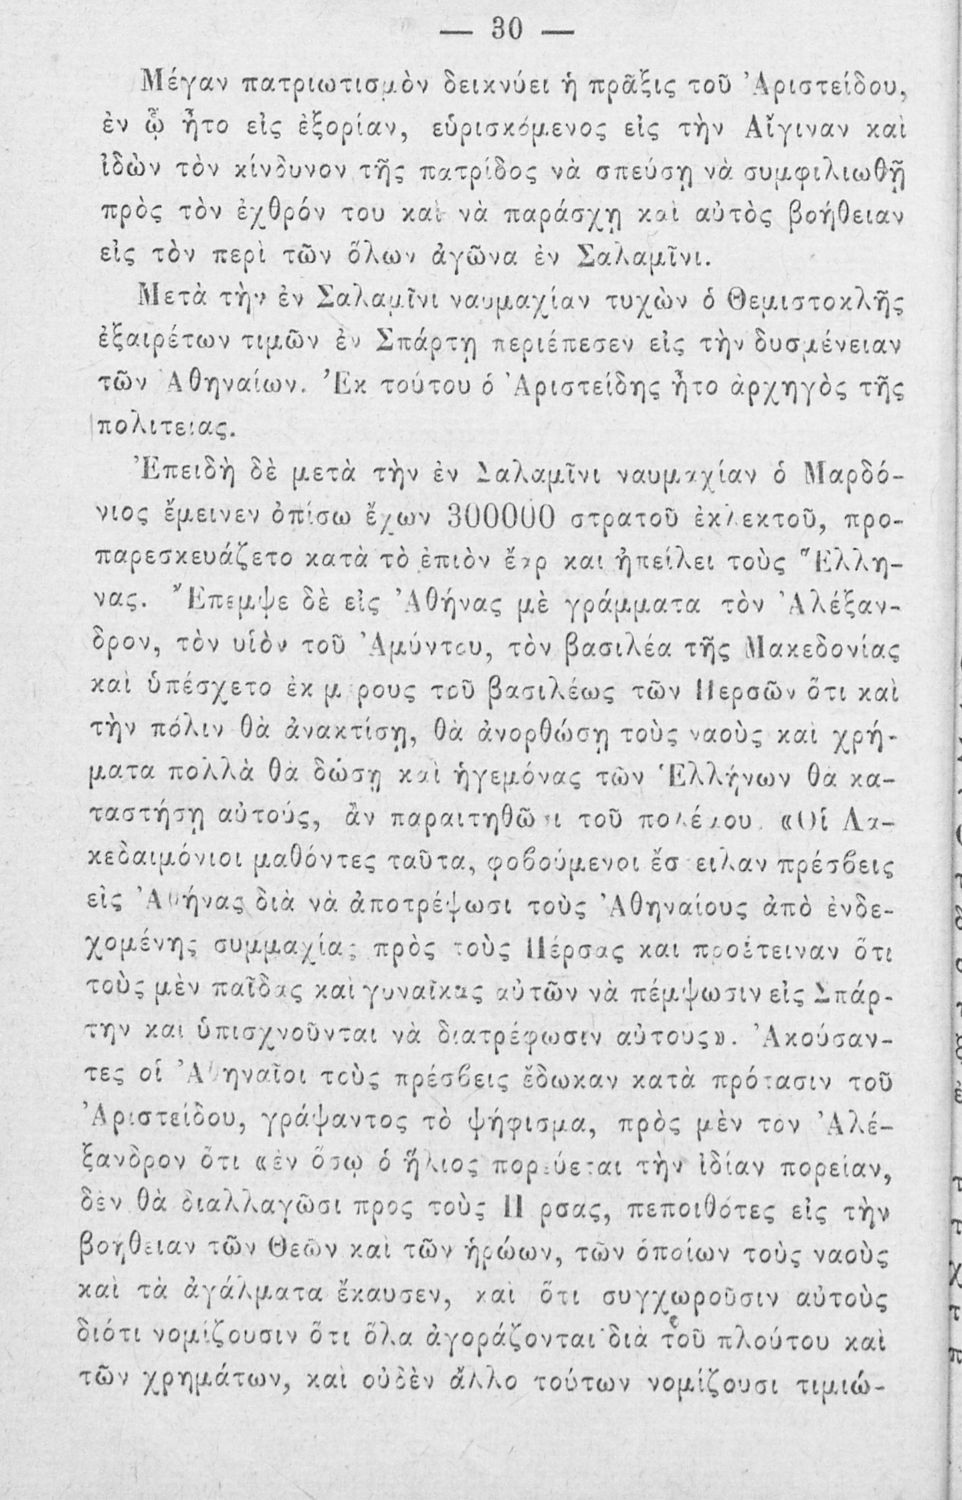 — 30 —
Μέγαν πατριωτισμὸν δεικνύει ἡ πρᾶξις τοῦ Ἀριστείδου,
ἐν ᾧ ἦτο εἰς ἐξορίαν, εὑρισκόμενος εἰς τὴν Αἴγιναν καὶ
ἰδὼν τὸν κίνδυνον τῆς πατρίδος νὰ σπεύσῃ νὰ συμφιλιωθῇ
πρὸς τὸν ἐχθρόν του καὶ νὰ παράσχῃ καὶ αὐτὸς βοήθειαν
εἰς τὸν περὶ τῶν ὅλων ἀγῶνα ἐν Σαλαμῖνι.
Μετὰ τὴν ἐν Σαλαμῖνι ναυμαχίαν τυχὼν ὁ Θεμιστοκλῆς
ἐξαιρέτων τιμῶν ἐν Σπάρτῃ περιέπεσεν εἰς τὴν δυσμένειαν
τῶν Ἀθηναίων. Ἐκ τούτου ὁ Ἀριστείδης ἦτο ἀρχηγὸς τῆς
πολιτείας.
Ἐπειδὴ δὲ μετὰ τὴν ἐν Σαλαμῖνι ναυμαχίαν ὁ Μαρδό-
νιος ἔμεινεν ὀπίσω ἔχων 300000 στρατοῦ ἐκλεκτοῦ, προ-
παρεσκευάζετο κατὰ τὸ ἐπιὸν ἔαρ καὶ ἠπείλει τοὺς Ἕλλη-
νας. Ἔπεμψε δὲ εἰς Ἀθήνας μὲ γράμματα τὸν Ἀλέξαν-
δρον, τὸν υἱὸν τοῦ Ἀμύντου, τὸν βασιλέα τῆς Μακεδονίας
καὶ ὑπέσχετο ἐκ μέρους τοῦ βασιλέως τῶν Περσῶν ὅτι καὶ
τὴν πόλιν θὰ ἀνακτίσῃ, θὰ ἀνορθώσῃ τοὺς ναοὺς καὶ χρή-
ματα πολλὰ θὰ δώσῃ καὶ ἡγεμόνας τῶν Ἑλλήνων θὰ κα-
ταστήσῃ αὐτούς, ἂν παραιτηθῶσι τοῦ πολέμου. «Οἱ Λα-
κεδαιμόνιοι μαθόντες ταῦτα, φοβούμενοι ἔστειλαν πρέσβεις
εἰς Ἀθήνας διὰ νὰ ἀποτρέψωσι τοὺς Ἀθηναίους ἀπὸ ἐνδε-
χομένης συμμαχίας πρὸς τοὺς Πέρσας καὶ προέτειναν ὅτι
τοὺς μὲν παῖδας καὶ γυναῖκας αὐτῶν νὰ πέμψωσιν εἰς Σπάρ-
την καὶ ὑπισχνοῦνται νὰ διατρέφωσιν αὐτούς». Ἀκούσαν-
τες οἱ Ἀθηναῖοι τοὺς πρέσβεις ἔδωκαν κατὰ πρότασιν τοῦ
Ἀριστείδου, γράψαντος τὸ ψήφισμα, πρὸς μὲν τὸν Ἀλέ-
ξανδρον ὅτι «ἐν ὅσῳ ὁ ἥλιος πορεύεται τὴν ἰδίαν πορείαν,
δὲν θὰ διαλλαγῶσι πρὸς τοὺς Πέρσας, πεποιθότες εἰς τὴν
βοήθειαν τῶν Θεῶν καὶ τῶν ἡρώων, τῶν ὁποίων τοὺς ναοὺς
καὶ τὰ ἀγάλματα ἔκαυσεν, καὶ ὅτι συγχωροῦσιν αὐτοὺς
διότι νομίζουσιν ὅτι ὅλα ἀγοράζονται διὰ τοῦ πλούτου καὶ
τῶν χρημάτων, καὶ οὐδὲν ἄλλο τούτων νομίζουσι τιμιώ-